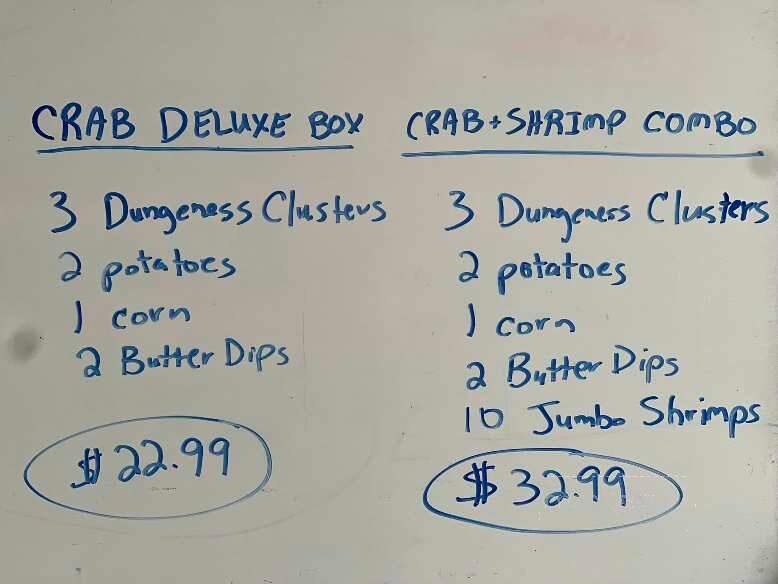 CRAB DELUXE BOX
3 Dungeness Clusters
2 potatoes
1 corn
2 Butter Dips
$22.99
CRAB+SHRIMP COMBO
3 Dungeness Clusters
2 potatoes
1 corn
2 Butter Dips
10 Jumbo Shrimps
$32.99